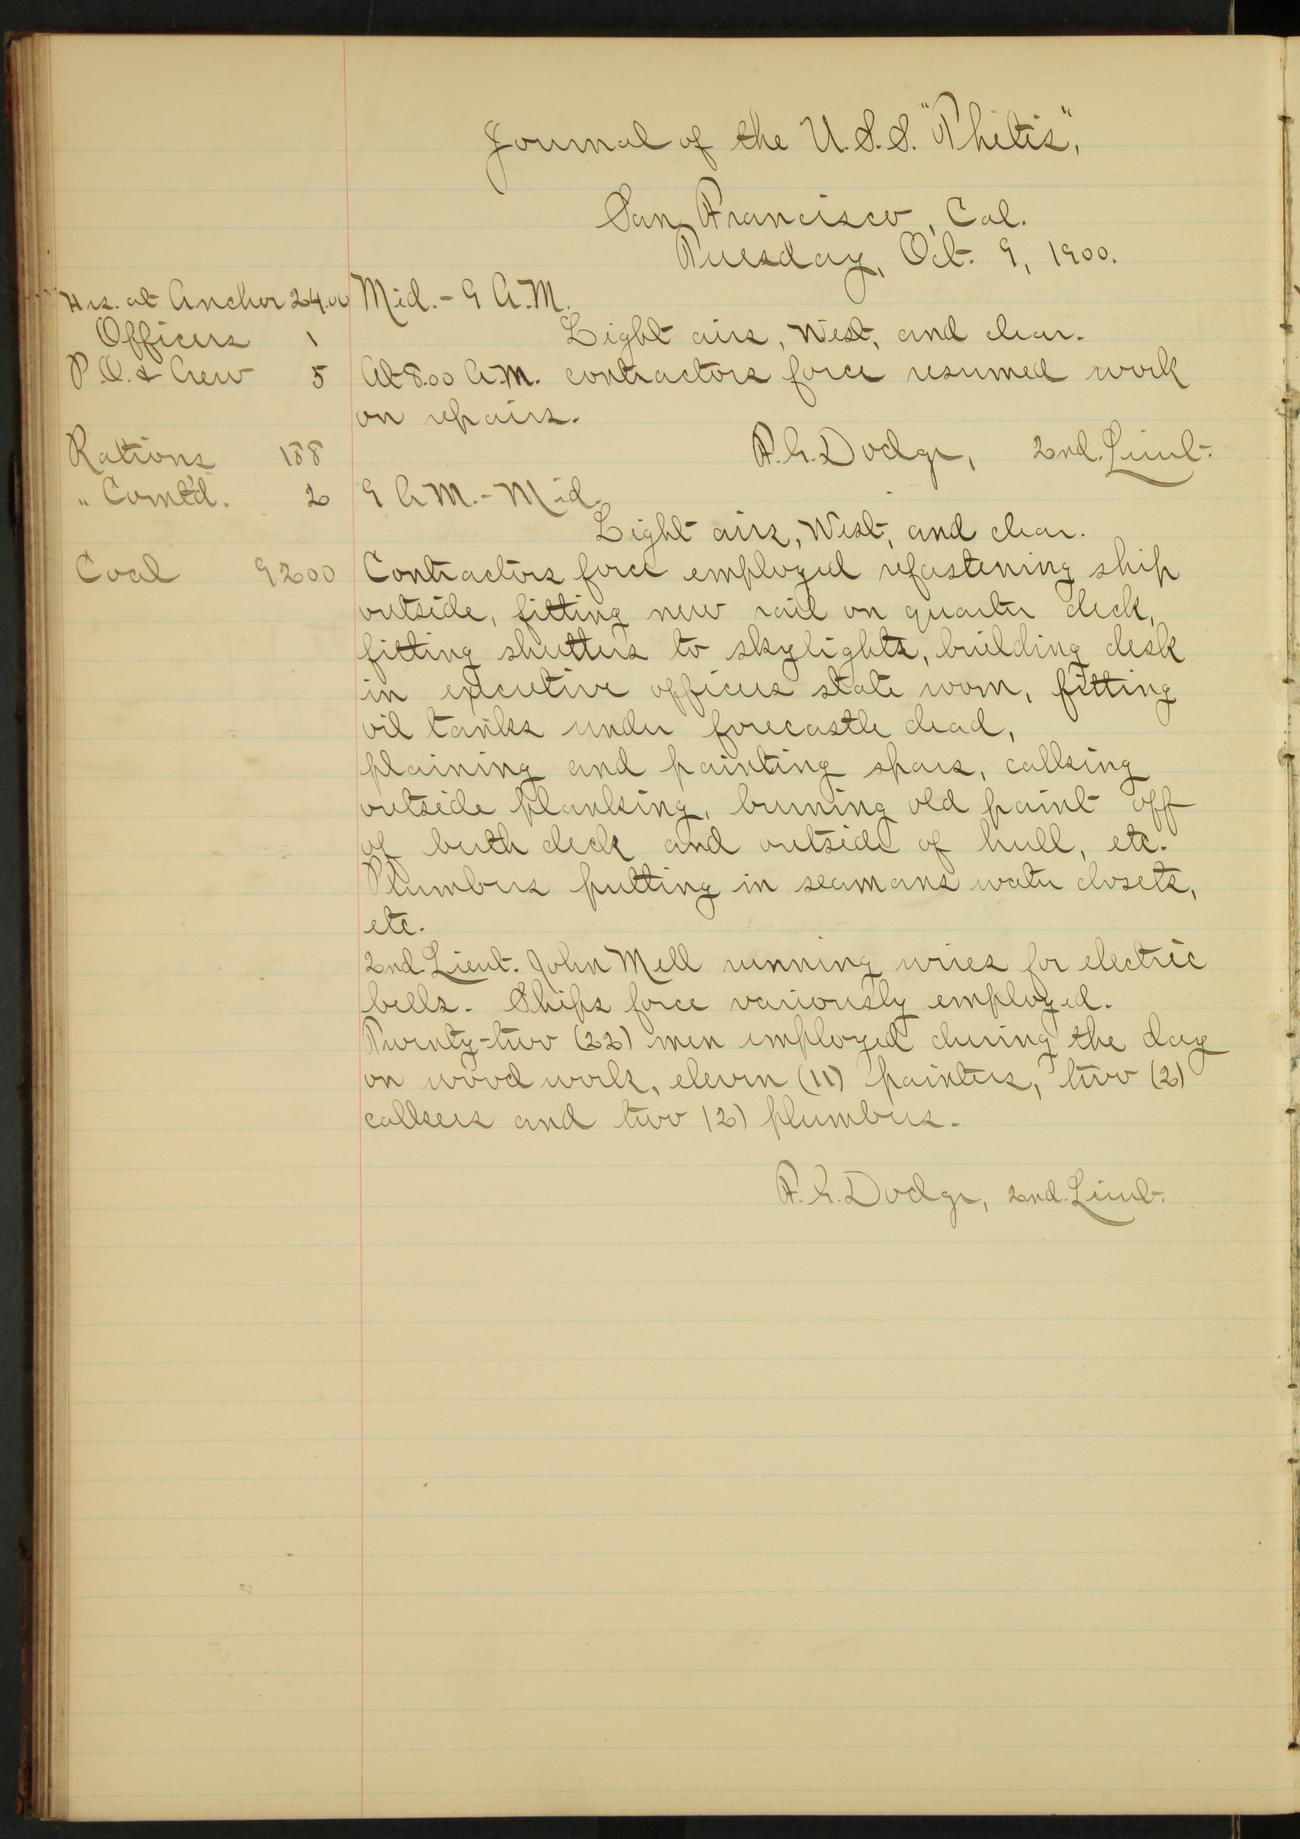 Journal of the U.S.S. "Thetis",
San Francisco, Cal.
Tuesday, Oct. 9, 1900.
Hrs. at Anchor 24.00
Officers 1
P.O. & Crew 5
Rations 188
" Com't'd. 2
Coal 9200
Mid. - 9 A.M.
Light airs, West, and clear.
At 8.00 A.M. contractors force resumed work
on repairs.
F.G. Dodge, 2nd. Lieut.
9 A.M. - Mid.
Light airs, West, and clear.
Contractors force employed refastening ship
outside, fitting new rail on quarter deck,
fitting shutters to skylights, building desk
in executive officers state room, fitting
oil tanks under forecastle head,
plaining and painting spars, calking
outside planking, burning old paint off
of berth deck and outside of hull, etc.
Plumbers putting in seamans water closets,
etc.
2nd. Lieut. John Mell running wires for electric
bells. Ships force variously employed.
Twenty-two (22) men employed during the day
on wood work, eleven (11) painters, two (2)
calkers and two (2) plumbers.
F.G. Dodge, 2nd. Lieut.